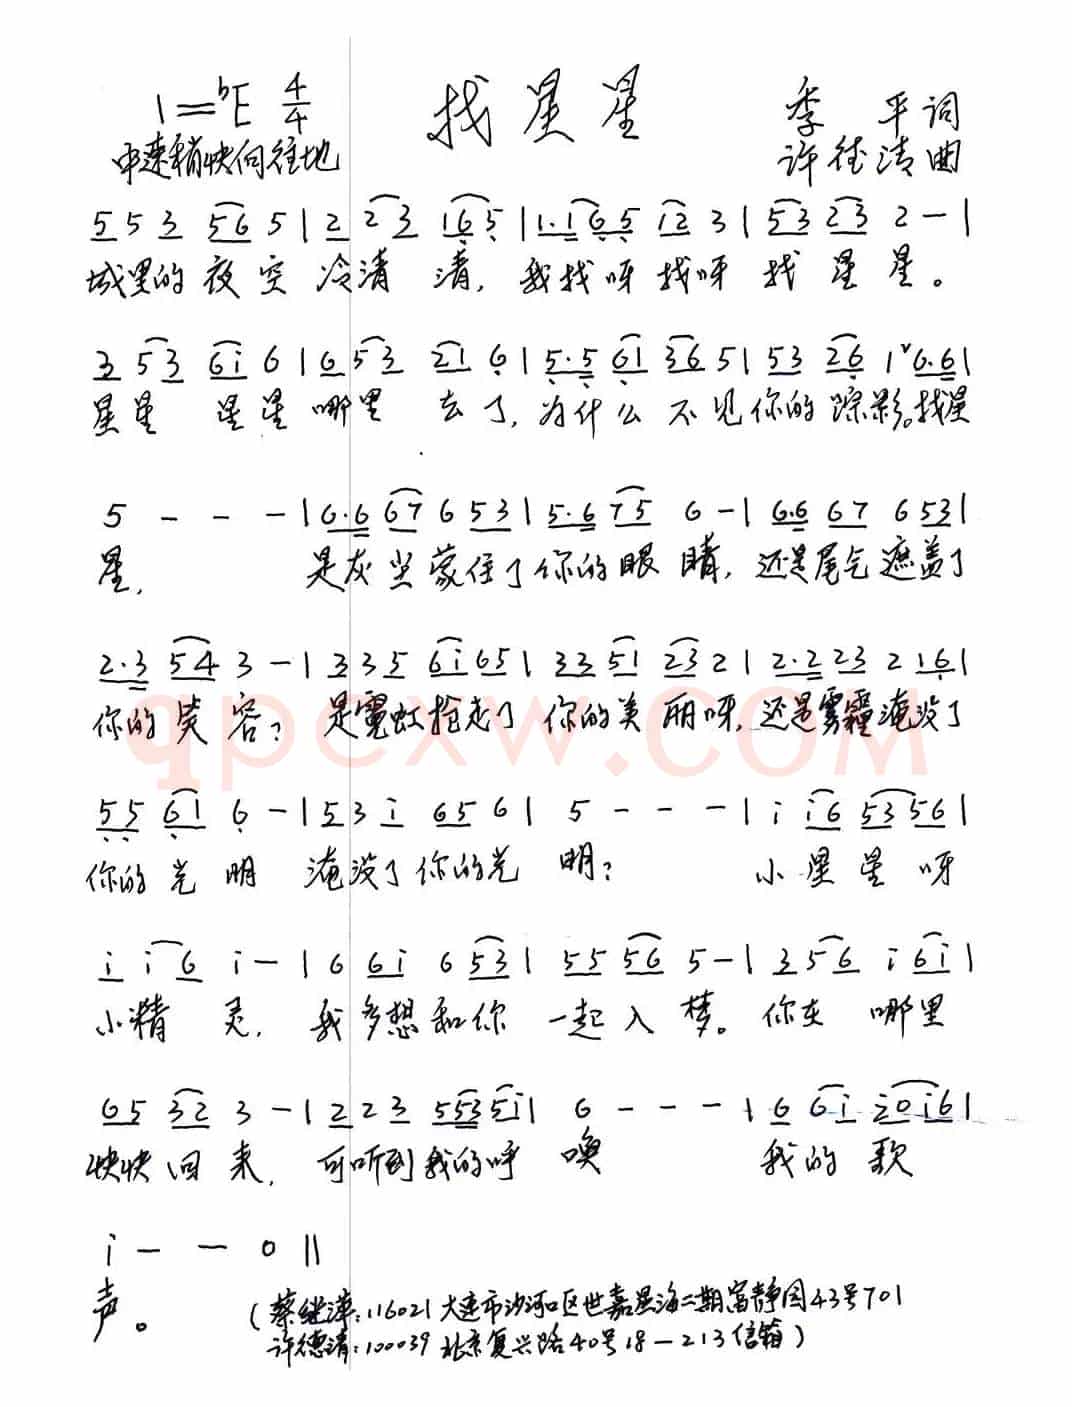 1=♭E 4/4 找星星 季 平词
中速稍快向往地 许德清曲
5 5 3 56 5 | 2 2 3 16 5 | 1.1 65 12 3 | 53 23 2 — |
城里的夜空冷清 清,我找呀找呀找 星 星。
3 5 3 6i 6 | 6 5 3 21 6 | 5.5 61 36 5 | 53 26 1ˇ6.6 |
星星 星星哪里 去了,为什么 不见你的踪影。找星
5 - - - | 6.6 67 6 53 | 5.6 75 6 - | 6.6 67 6 53 |
星, 是灰尘蒙住了你的眼 睛,还是尾气遮盖了
2.3 54 3 - | 3 3 5 6i 65 | 33 51 23 2 | 2.2 23 2 16 |
你的笑 容?是霓虹抢走了你的美丽呀,还是雾霾淹没了
qpcxw.COM
55 61 6 - | 5 3 i 65 6 | 5 - - - | i i6 53 56 |
你的光 明 淹没了你的光 明? 小星星呀
i i 6 i - | 6 6i 6 53 | 55 56 5 - | 3 5 6 i 6i |
小精 灵,我多想和你一起入梦。你在 哪里
65 32 3 - | 2 2 3 553 5i | 6 - - - | 6 6i i0i6 |
快快回 来,可听到我的呼 唤 我的 歌
i — — 0 ||
声。
(蔡继萍:116021大连市沙河口区世嘉星海二期富静园43号701
许德清:100039 北京复兴路40号18-213信箱)